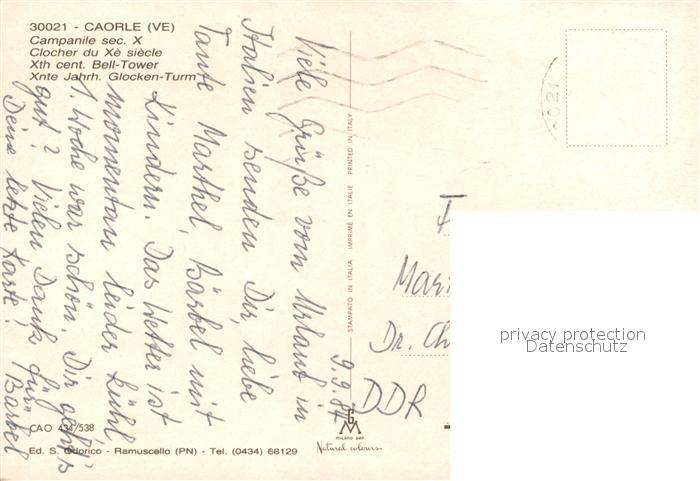 30021 - CAORLE (VE)
Campanile sec. X
Clocher du Xè siècle
Xth cent. Bell-Tower
Xnte Jahrh. Glocken-Turm
9.9.87
Viele Grüße vom Urlaub in
Italien senden Dir, liebe
Tante Marthel, Bärbel mit
Kindern. Das Wetter ist
momentan leider kühl
1. Woche war schön. Dir geht's
gut? Vielen Dank für
Deine letzte Karte! Bärbel
STAMPATO IN ITALIA IMPRIMÉ EN ITALIE PRINTED IN ITALY
Dr.
DDR
privacy protection
Datenschutz
CAO 434/538
Ed. S. Odorico - Ramuscello (PN) - Tel. (0434) 68129
GM
MILANO
Natural colours